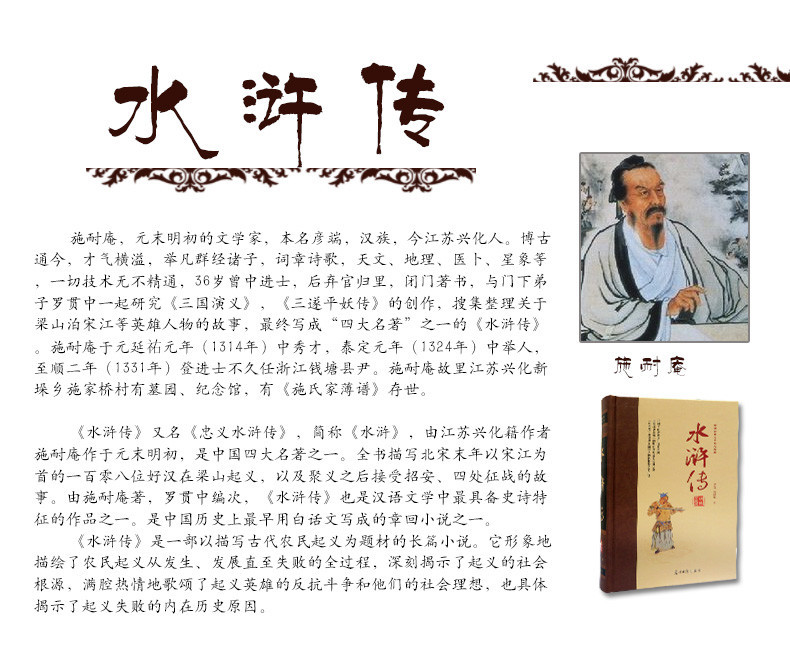 水浒传
施耐庵，元末明初的文学家，本名彦端，汉族，今江苏兴化人。博古
通今，才气横溢，举凡群经诸子，词章诗歌，天文、地理、医卜、星象等
，一切技术无不精通，36岁曾中进士，后弃官归里，闭门著书，与门下弟
子罗贯中一起研究《三国演义》，《三遂平妖传》的创作，搜集整理关于
梁山泊宋江等英雄人物的故事，最终写成“四大名著”之一的《水浒传》
。施耐庵于元延祐元年（1314年）中秀才，泰定元年（1324年）中举人，
至顺二年（1331年）登进士不久任浙江钱塘县尹。施耐庵故里江苏兴化新
垛乡施家桥村有墓园、纪念馆，有《施氏家薄谱》存世。
《水浒传》又名《忠义水浒传》，简称《水浒》，由江苏兴化籍作者
施耐庵作于元末明初，是中国四大名著之一。全书描写北宋末年以宋江为
首的一百零八位好汉在梁山起义，以及聚义之后接受招安、四处征战的故
事。由施耐庵著，罗贯中编次，《水浒传》也是汉语文学中最具备史诗特
征的作品之一。是中国历史上最早用白话文写成的章回小说之一。
《水浒传》是一部以描写古代农民起义为题材的长篇小说。它形象地
描绘了农民起义从发生、发展直至失败的全过程，深刻揭示了起义的社会
根源，满腔热情地歌颂了起义英雄的反抗斗争和他们的社会理想，也具体
揭示了起义失败的内在历史原因。
施耐庵
水浒传